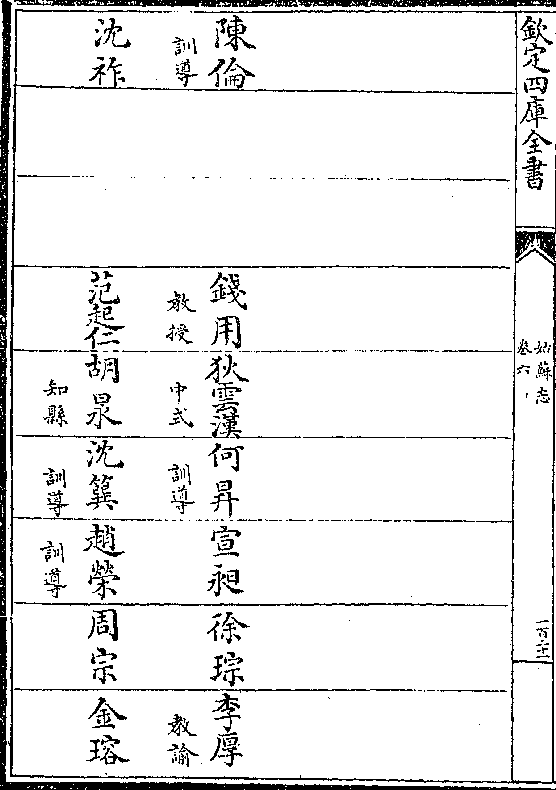 欽定四庫全書
姑蘇志
卷六
陳倫
訓導
錢用
教授
狄雲漢
中式
何昇
訓導
宣昶
徐琮
李厚
教諭
沈祚
范起仁
胡泉
知縣
沈簨
訓導
趙榮
訓導
周宗
金瑢